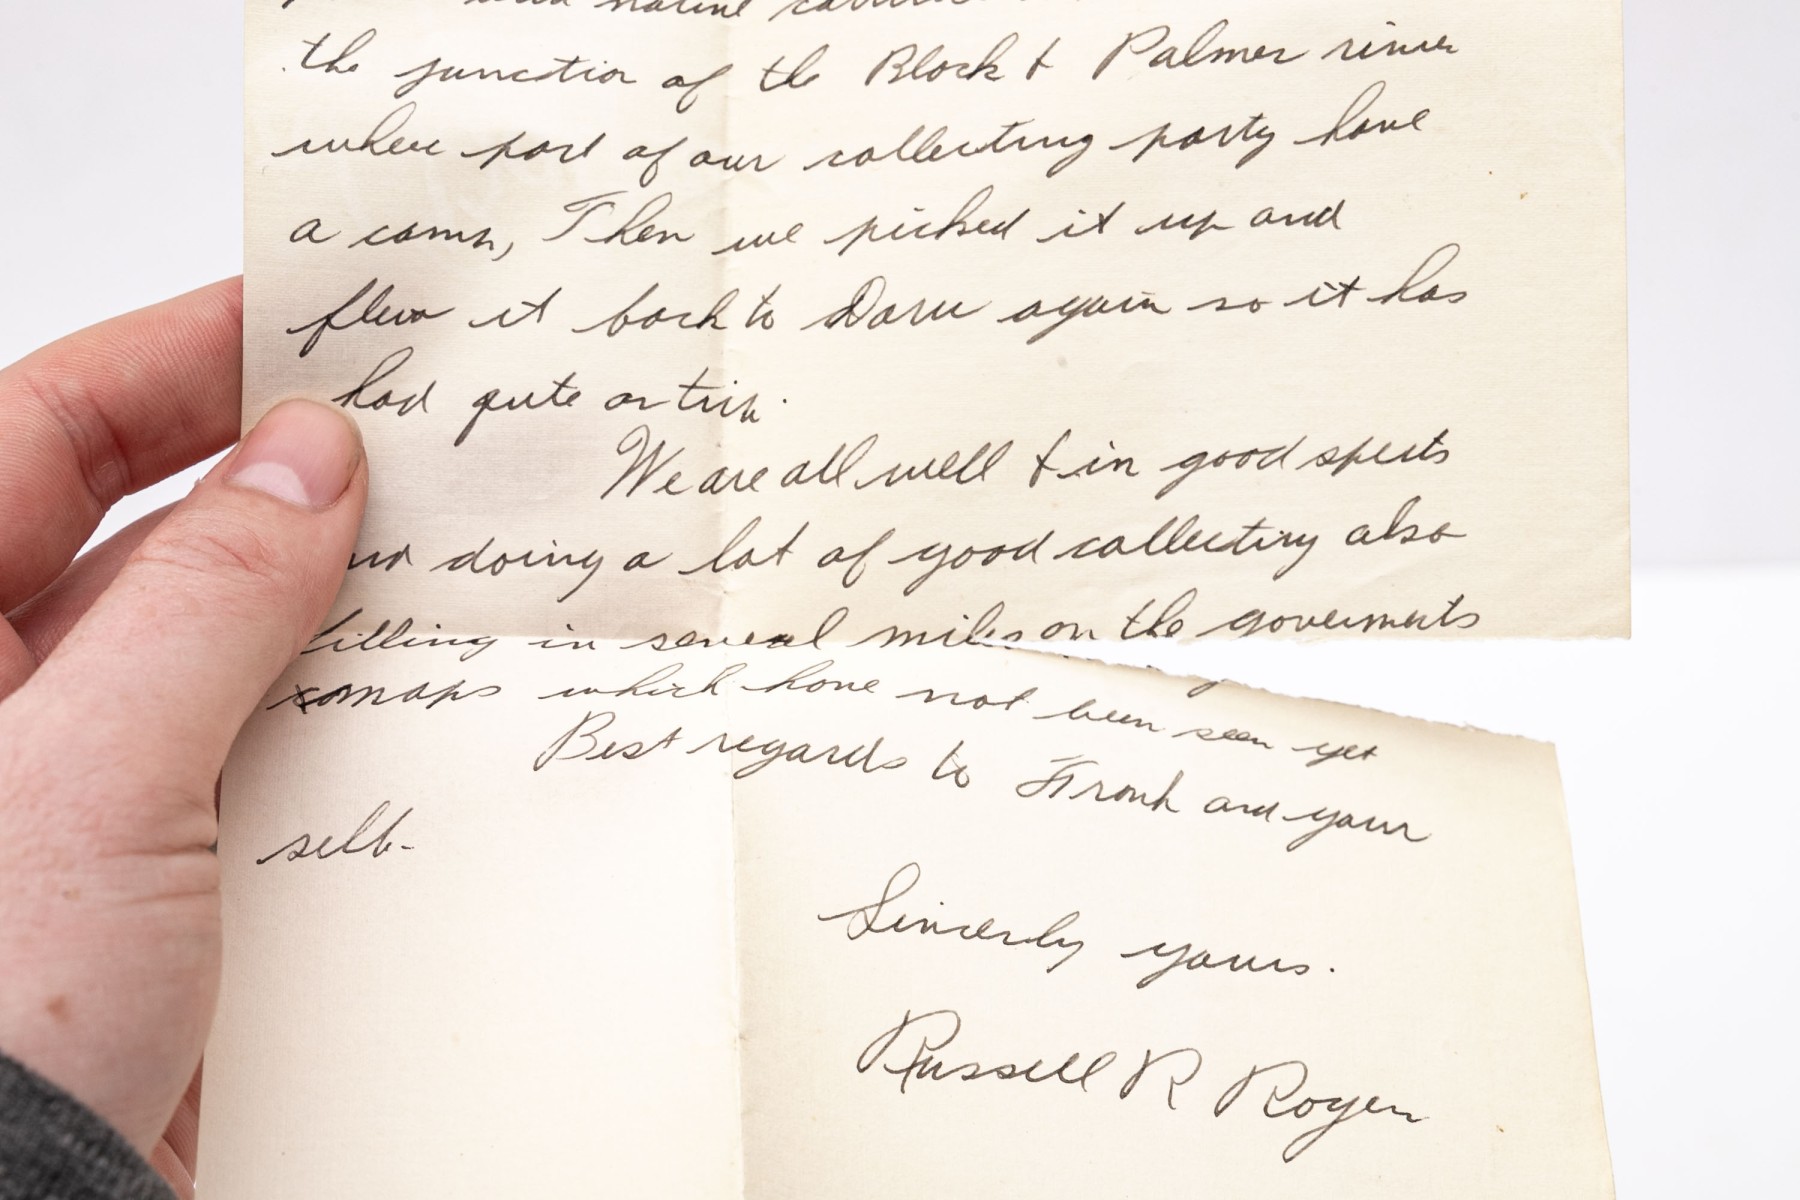 and native
the junction of the Black & Palmer river
where part of our collecting party have
a camp, Then we picked it up and
flew it back to Daru again so it has
had quite a trip.
We are all well & in good spirits
and doing a lot of good collecting also
filling in several miles on the goverments
maps which have not been seen yet
Best regards to Frank and your
self-
Sincerly yours.
Russell R Rogers